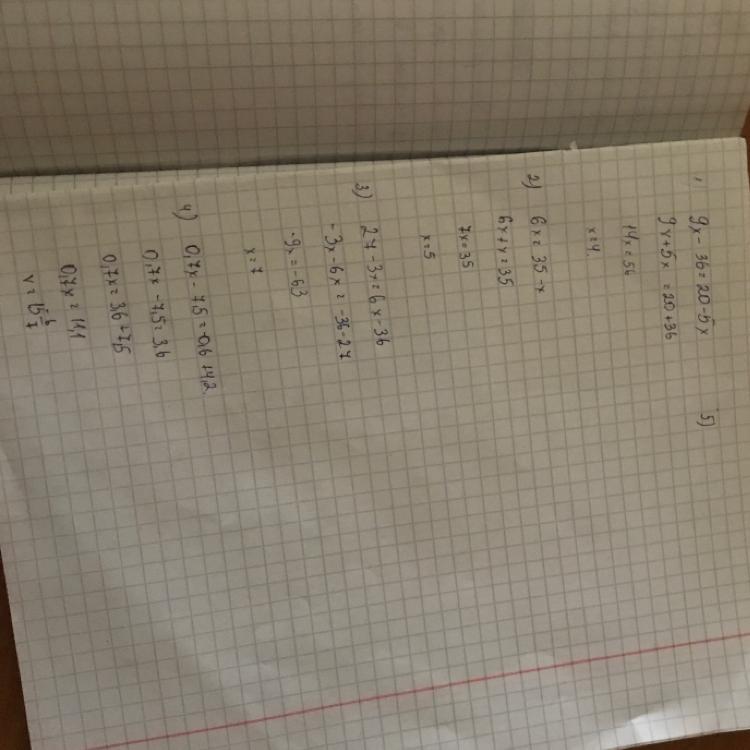 1)
9x - 36 = 20 - 5x
9x + 5x = 20 + 36
14x = 56
x = 4.
2)
6x = 35 - x
6x + x = 35
7x = 35
x = 5
3)
27 - 3x = 6x - 36
- 3x - 6x = -36 - 27
-9x = -63
x = 7
4)
0,7x - 7,5 = -0,6 + 4,2.
0,7x - 7,5 = 3,6
0,7x = 3,6 + 7,5
0,7x = 11,1
x = 15 6/7
5)